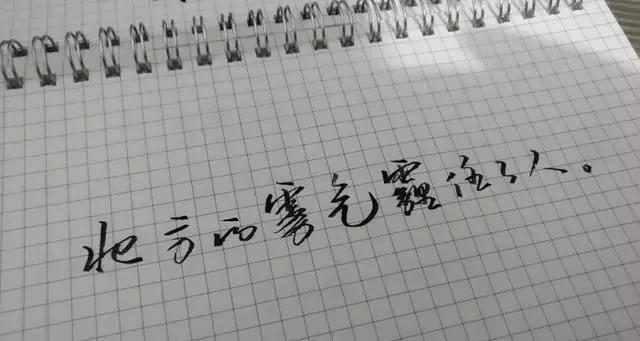 北方的雾气霾住了人。